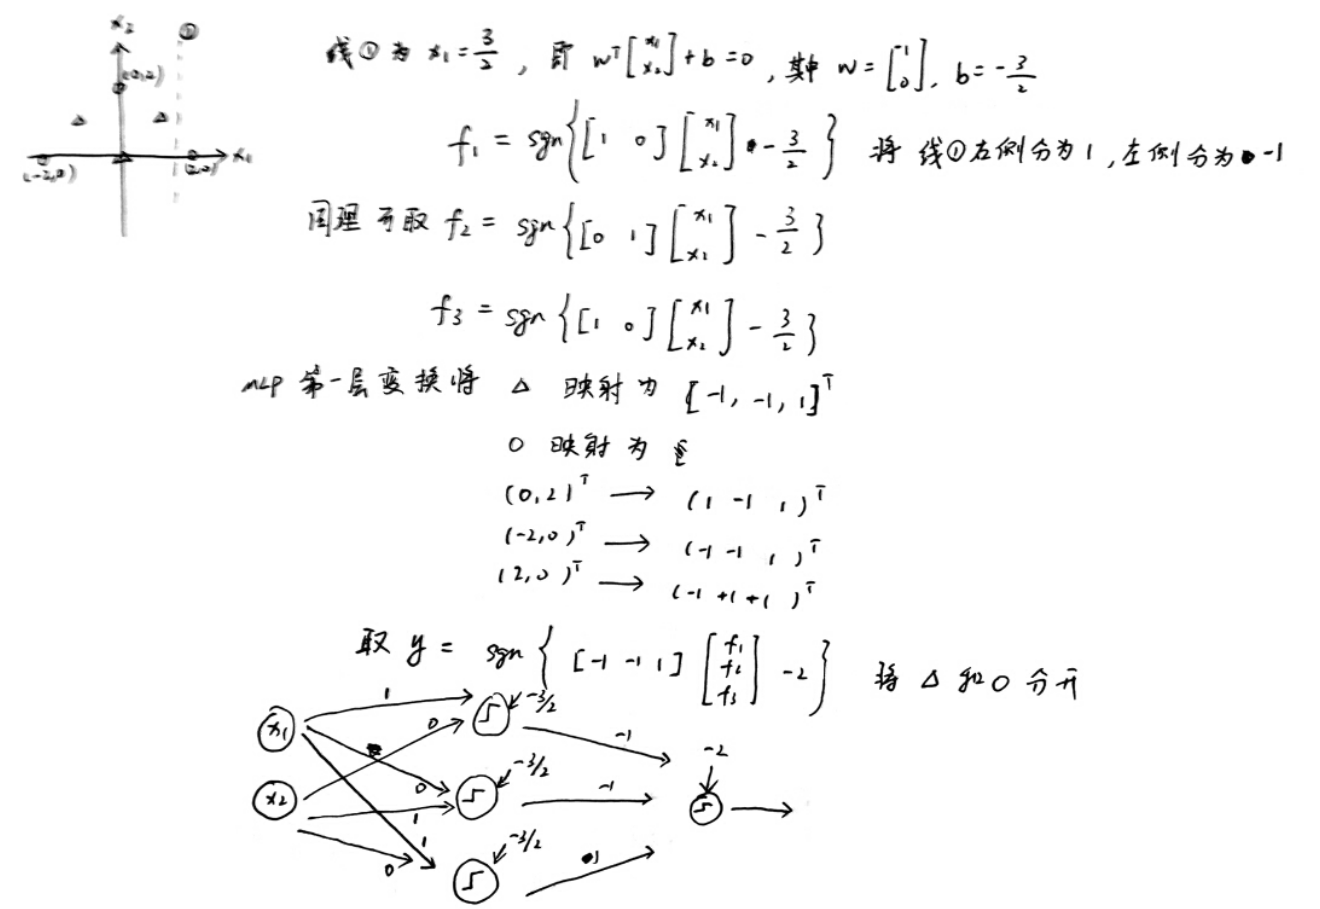 x₂
①
(0,2)
x₁
(-2,0)
(2,0)
线①为 x₁ = 3/2 , 即 wᵀ[x₁ x₂] + b = 0 , 其中 w = [1 0], b = -3/2
f₁ = sgn{[1 0][x₁ x₂] - 3/2} 将线①右侧分为1, 左侧分为-1
同理可取 f₂ = sgn{[0 1][x₁ x₂] - 3/2}
f₃ = sgn{[1 0][x₁ x₂] - 3/2}
MLP 第一层变换将 Δ 映射为 [-1, -1, 1]ᵀ
O 映射为
(0,2)ᵀ → (1 -1 1)ᵀ
(-2,0)ᵀ → (-1 -1 1)ᵀ
(2,0)ᵀ → (-1 +1 +1)ᵀ
取 y = sgn{[-1 -1 1][f₁ f₂ f₃] - 2} 将 Δ 和 O 分开
x₁ 1 0 -3/2 -1
-2
x₂ 0 1 -3/2 -1
0 1 -3/2 1